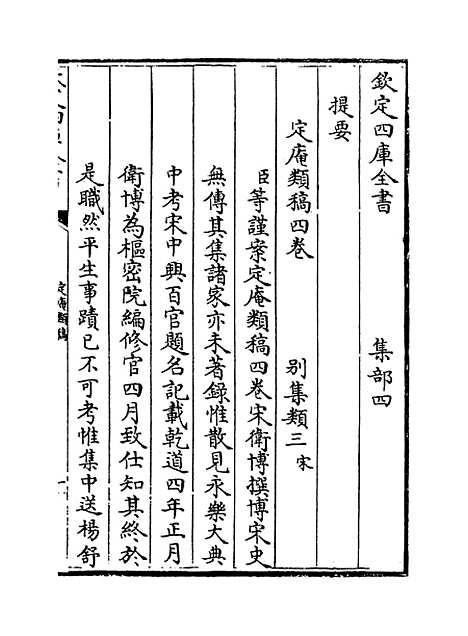 欽定四庫全書　集部四
提要
定庵類稿四卷　別集類三宋
臣等謹案定庵類稿四卷宋衛博撰博宋史
無傳其集諸家亦未著錄惟散見永樂大典
中考宋中興百官題名記載乾道四年正月
衛博為樞密院編修官四月致仕知其終於
是職然平生事蹟已不可考惟集中送楊舒
定庵類稿